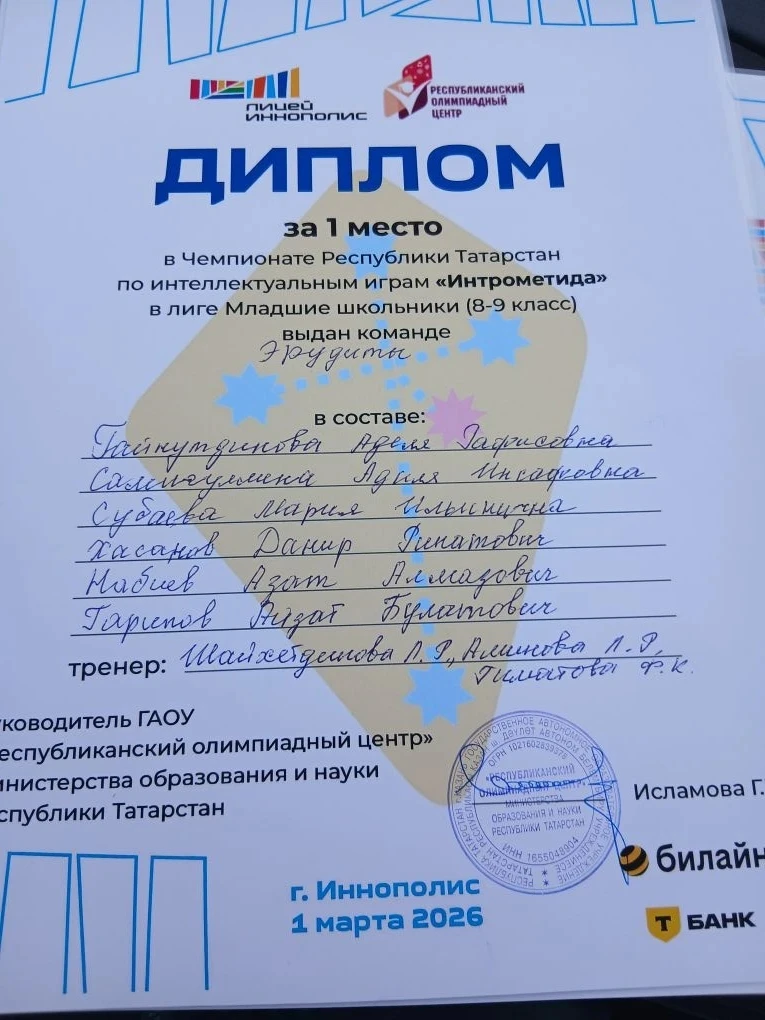 ЛИЦЕЙ
ИННОПОЛИС
РЕСПУБЛИКАНСКИЙ
ОЛИМПИАДНЫЙ
ЦЕНТР
ДИПЛОМ
за 1 место
в Чемпионате Республики Татарстан
по интеллектуальным играм «Интрометида»
в лиге Младшие школьники (8-9 класс)
выдан команде
Эрудиты
в составе:
Гайнутдинова Аделя Рафисовна
Салигуллина Адиля Инсафовна
Субаева Мария Ильинична
Хасанов Данир Ринатович
Набиев Азат Алмазович
Гарипов Айзат Булатович
тренер: Шайхетдинова Л.Р., Аминова Л.Р,
Гиматова Ф.К.
уководитель ГАОУ
еспубликанский олимпиадный центр»
инистерства образования и науки
спублики Татарстан
«РЕСПУБЛИКАНСКИЙ
ОЛИМПИАДНЫЙ ЦЕНТР»
МИНИСТЕРСТВА
ОБРАЗОВАНИЯ И НАУКИ
РЕСПУБЛИКИ ТАТАРСТАН
ИНН 1655048904
Исламова Г.
билайн
г. Иннополис
1 марта 2026
Т БАНК